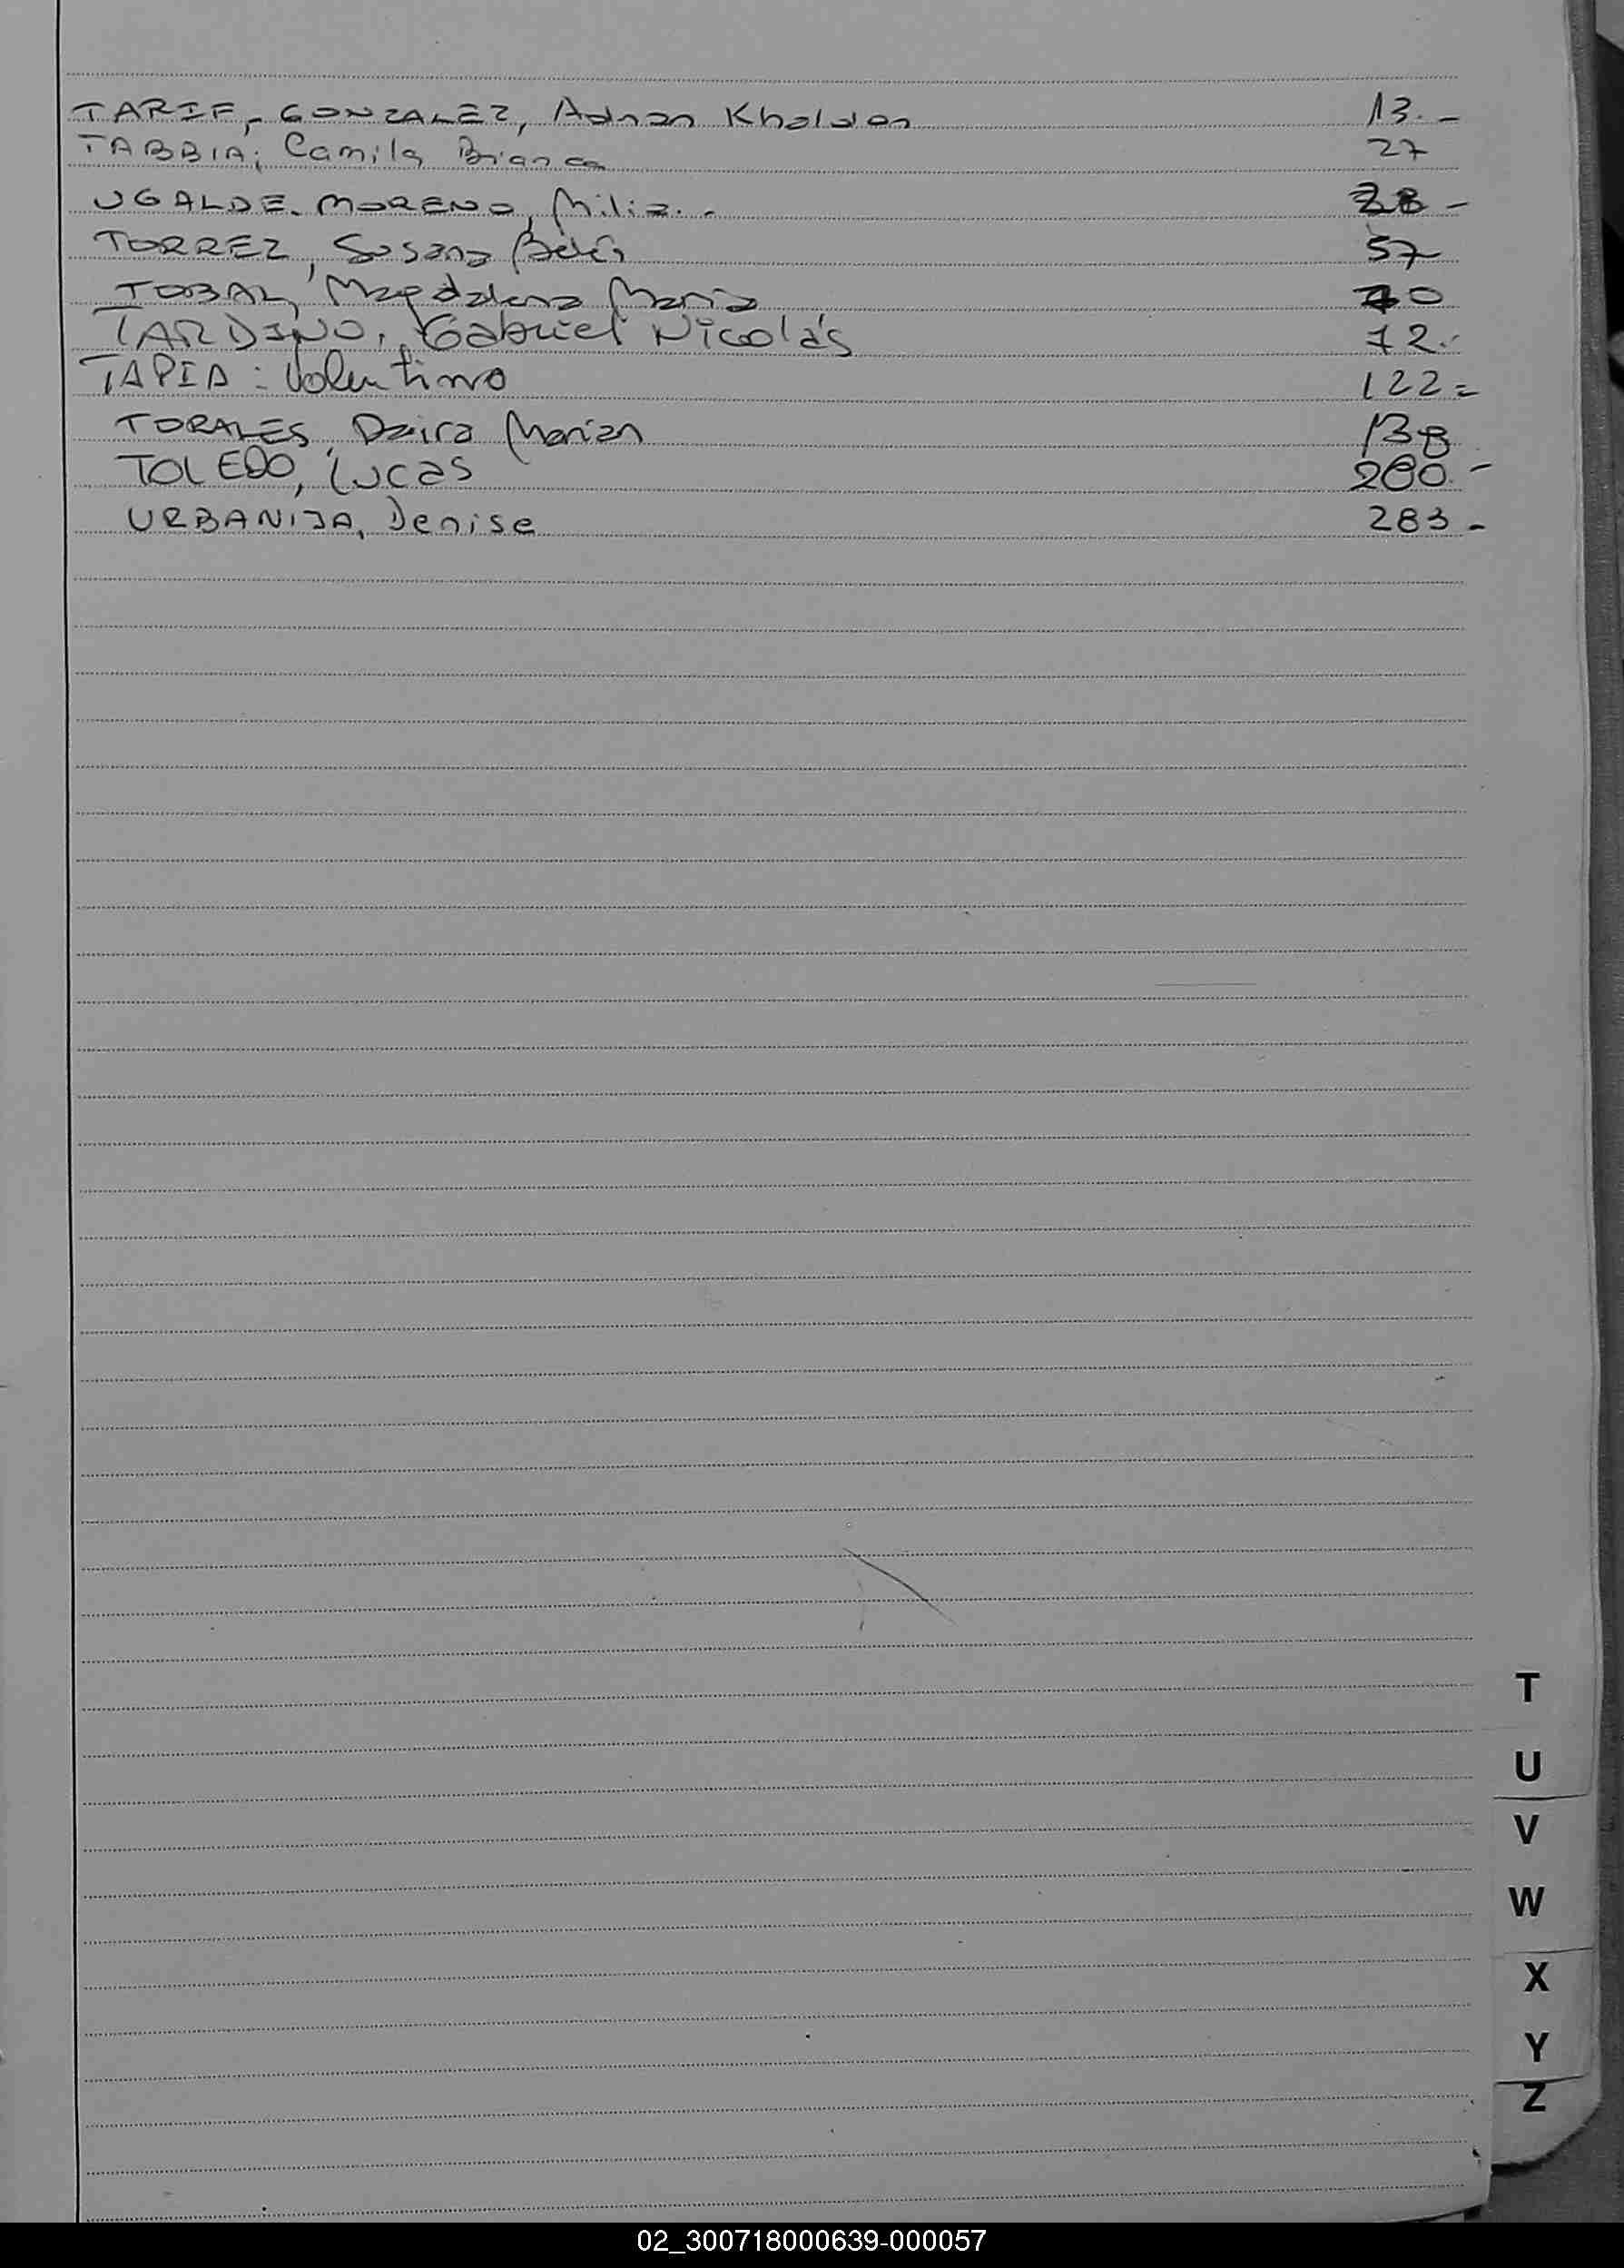 TARIF, GONZALEZ, Adnan Khaldon 13.-
TABBIA; Camila Bianca 27
UGALDE. MORENO, Milia.. 28-
TORREZ, Susana Belén 57
TOBAL, Magdalena Maria 70
TARDINO, Gabriel Nicolás 72.-
TAPIA: Valentino 122=
TORALES, Daira Marian 138
TOLEDO, Lucas 200.-
URBANIJA, Denise 283-
T
U
V
W
X
Y
Z
02_300718000639-000057